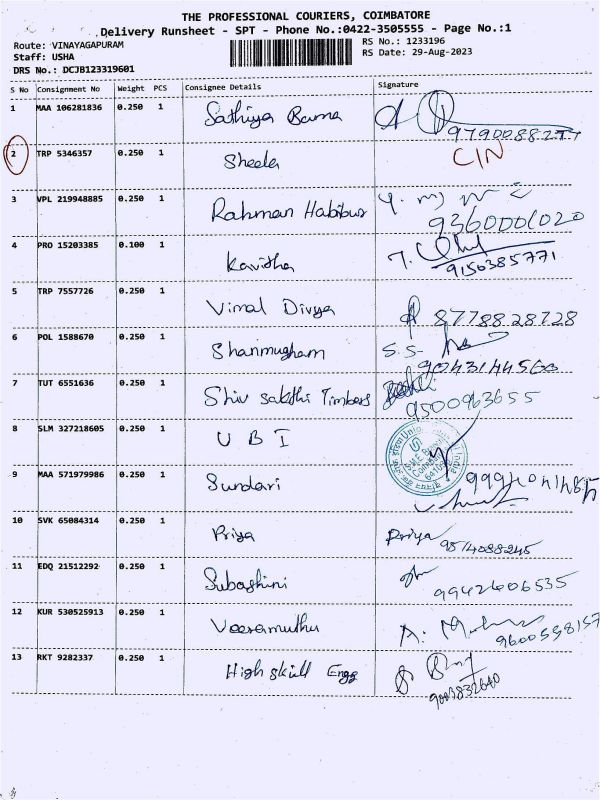 THE PROFESSIONAL COURIERS, COIMBATORE
Delivery Runsheet - SPT - Phone No.:0422-3505555 - Page No.:1
Route: VINAYAGAPURAM
Staff: USHA
DRS No.: DCJB123319601
RS No.: 1233196
RS Date: 29-Aug-2023
S No Consignment No Weight PCS Consignee Details Signature
1 MAA 106281836 0.250 1 Sathiya Bama
2 TRP 5346357 0.250 1 Sheela CIN
3 VPL 219948885 0.250 1 Rahman Habibur 9360001020
4 PRO 15203385 0.100 1 Kavitha 9150385771
5 TRP 7557726 0.250 1 Vimal Divya 8778828728
6 POL 1588670 0.250 1 Shanmugham S.S. 9043144560
7 TUT 6551636 0.250 1 Shiv Sakthi Timbers 9500963655
8 SLM 327218605 0.250 1 U B I
9 MAA 571979986 0.250 1 Sundari
10 SVK 65084314 0.250 1 Priya Priya
11 EDQ 21512292 0.250 1 Subashini 9942606535
12 KUR 530525913 0.250 1 Veeramuthu
13 RKT 9282337 0.250 1 High skill Engg 9003832640